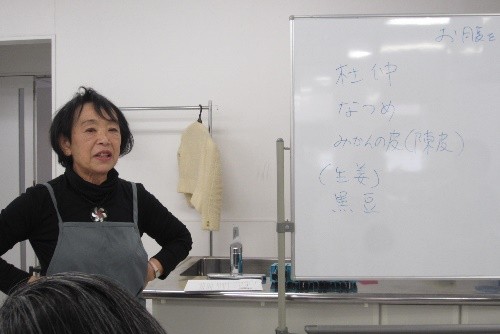 お腹を
杜仲
なつめ
みかんの皮(陳皮)
(生姜)
黒豆